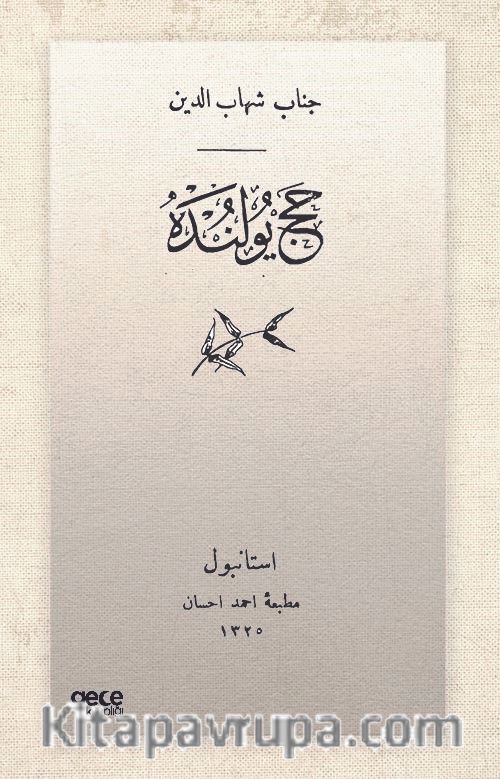 جناب شهاب الدين
حَجّ يُولُنْدَهْ
استانبول
مطبعهٔ احمد احسان
١٣٢٥
gece
kitaplığı
Kitapavrupa.com